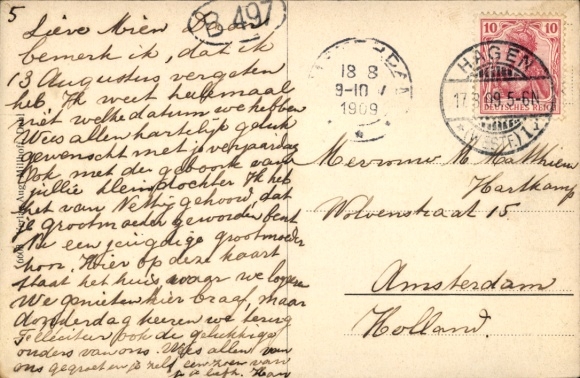 5
B 497
Lieve Mien, Daar
bemerk ik, dat ik
13 Augustus vergeten
heb. Ik weet helemaal
niet welke datum we hebben
Wees allen hartelijk geluk
gewenscht met je verjaardag
Ook met de geboorte van
jullie kleindochter Ik heb
het van Nettig gehoord, dat
je grootmoeder geworden bent
Nu een jeugdige grootmoeder
hoor. Hier op deze kaart
staat het huis, waar we logeeren
We genieten hier braaf, maar
donderdag keeren we terug
Feliciteer ook de gelukkige
ouders van ons. Wees allen van
ons gegroet en je zelf een zoen van
18 8
9-10 V
1909
10 10
DEUTSCHES REICH
HAGEN
17.8.09.5-6N
Mevrouw M. Matthien
Hartkamp
Wolvenstraat 15.
Amsterdam
Holland.